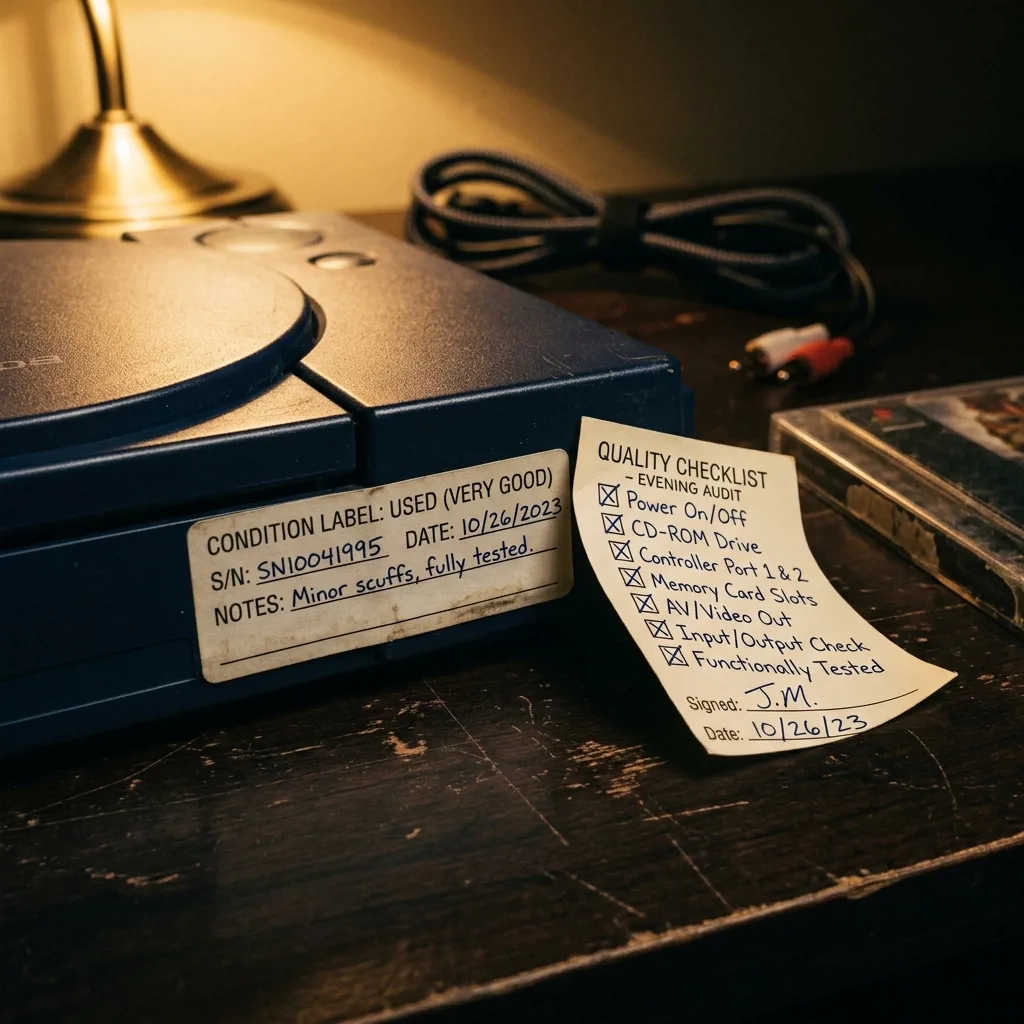 CONDITION LABEL: USED (VERY GOOD)
S/N: SN10041995 DATE: 10/26/2023
NOTES: Minor scuffs, fully tested.
QUALITY CHECKLIST
- EVENING AUDIT
Power On/Off
CD-ROM Drive
Controller Port 1 & 2
Memory Card Slots
AV/Video Out
Input/Output Check
Functionally Tested
Signed: J.M.
Date: 10/26/23